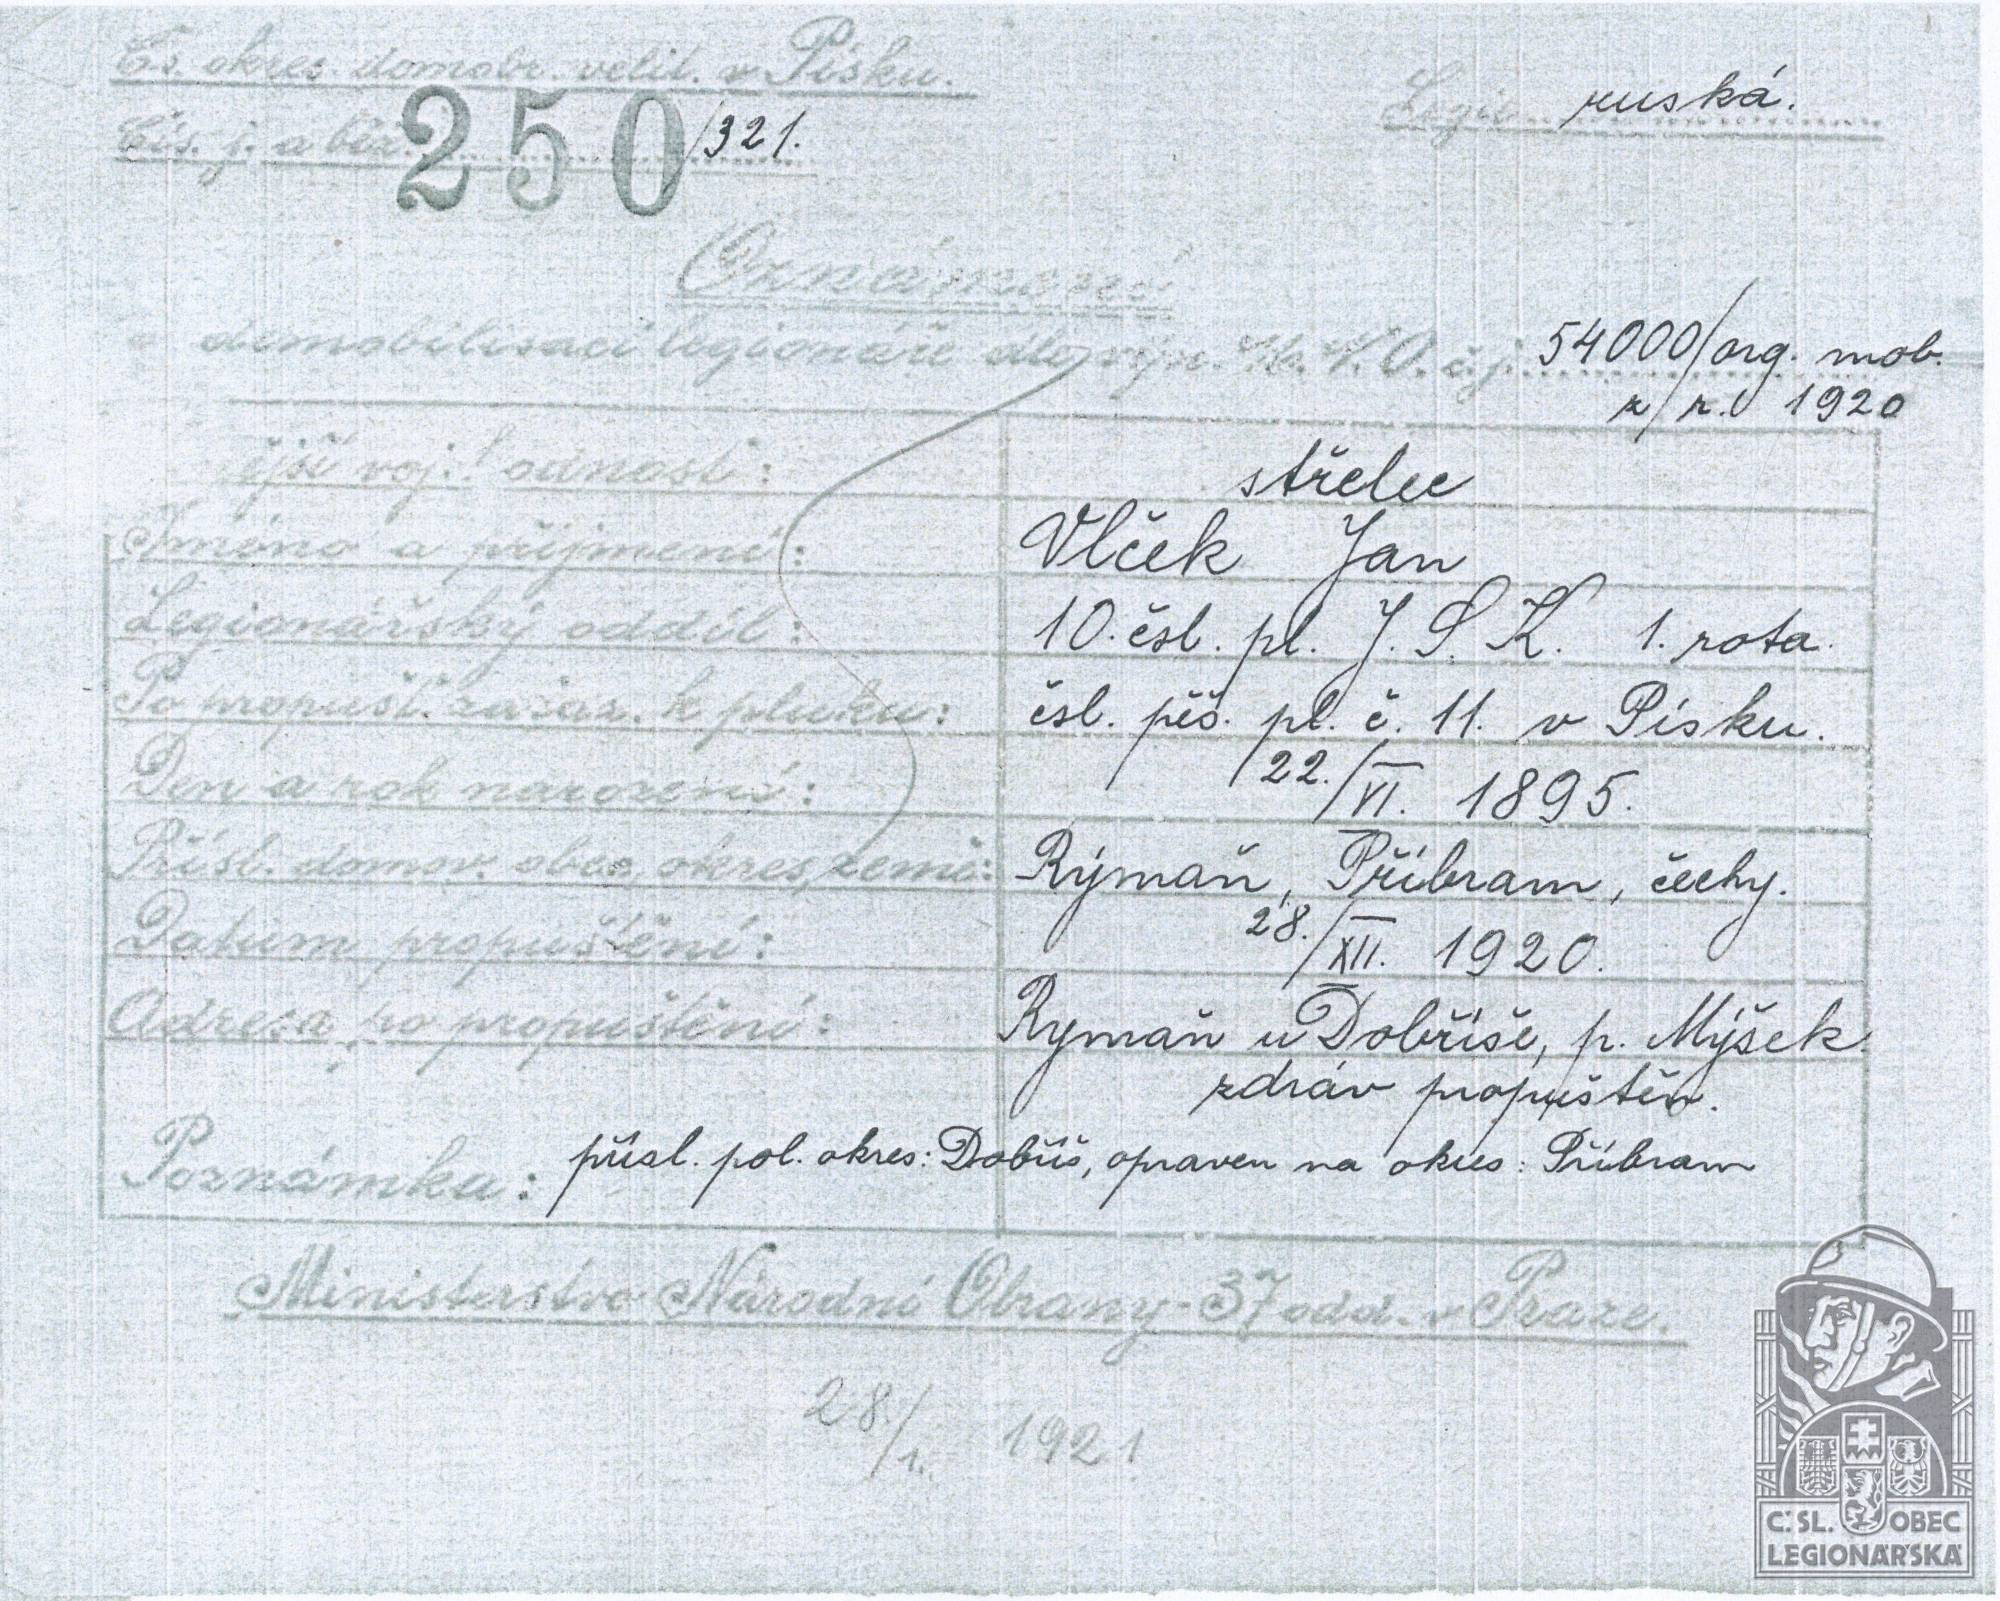 Čs. okres. domobr. velit. v Písku.
Legie ruská.
Čís. j. a běž. 250/321.
Oznámení
o demobilisaci legionáře dle výn. M. N. O. č.j. 54000/org. mob.
z/r. 1920
nější voj. hodnost: střelec
Jméno a příjmení: Vlček Jan
Legionářský oddíl: 10. čsl. pl. J. S. K. 1. rota.
Po propušt. zařaz. k pluku: čsl. pěš. pl. č. 11. v Písku.
Den a rok narození: 22./VI. 1895.
Přísl. domov. obec, okres, země: Rýmaň, Příbram, čechy.
Datum propuštění: 28./XII. 1920.
Adresa po propuštění: Rymaň u Dobříše, p. Mýšek.
zdráv propuštěn.
Poznámka: přísl. pol. okres: Dobříš, opraven na okres: Příbram
Ministerstvo Národní Obrany - 37 odd. v Praze.
28./1. 1921
Č. SL. OBEC
LEGIONÁŘSKÁ